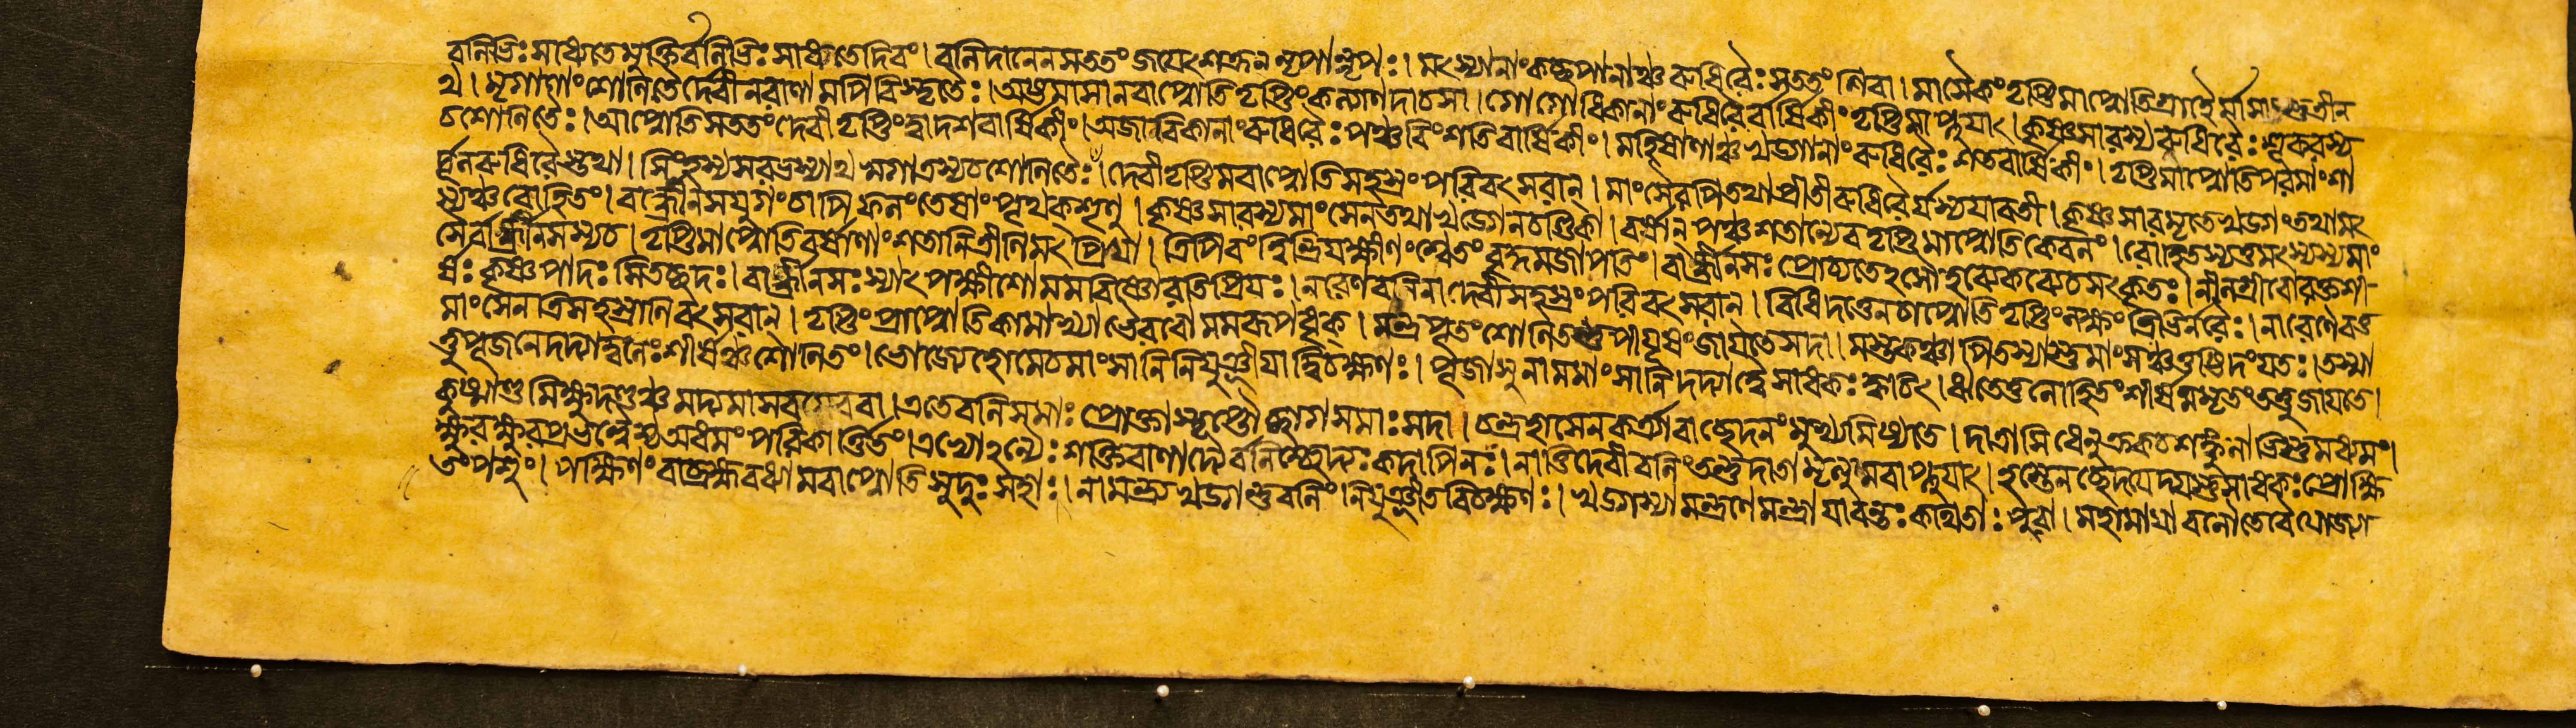 বলিভিঃসাধ্যতেমুক্তির্বলিভিঃসাধ্যতেদিবং।বলিদানেনসততংজয়েৎশত্রূননৃপান্নৃপঃ।মৎস্যানাংকচ্ছপানাঞ্চরুধিরৈঃসততংশিবা।মাসৈকংতৃপ্তিমাপ্নোতিগ্রাহৈর্মাসাংস্তুত্রীন
থ।মৃগাণাংশোণিতৈর্দেবীনরাণামপি।অষ্টমাসানবাপ্নোতিতৃপ্তিংকল্যাণদাচসা।গোগৌধিকানাংরুধিরৈর্বার্ষিকীংতৃপ্তিমাপ্নুয়াৎ।কৃষ্ণসারস্যরুধিরৈঃশূকরস্য
চশোণিতৈঃ।আপ্নোতিসততংদেবীতৃপ্তিংদ্বাদশবার্ষিকীং।অজাবিকানাংরুধিরৈঃপঞ্চবিংশতিবার্ষিকীং।মহিষাণাঞ্চখড়্গানাংরুধিরৈঃশতবার্ষিকীং।তৃপ্তিমাপ্নোতিপরমাংশা
র্দ্দূলরুধিরৈস্তথা।সিংহস্যসরভস্যাথস্বগাত্রস্যচশোণিতৈঃ।দেবীতৃপ্তিমবাপ্নোতিসহস্রংপরিবৎসরান্।মাংসৈরপিতথাপ্রীতীরুধিরৈর্যস্যযাবতী।কৃষ্ণসারমৃতেখড়্গংতথামৎ
স্যঞ্চরোহিতং।বার্দ্ধ্রীনসযুগংচাপিফলংতেষাংপৃথক্শৃণু।কৃষ্ণসারস্যমাংসেনতথাখড়্গেনচণ্ডিকা।বর্ষান্পঞ্চশতান্যেবতৃপ্তিমাপ্নোতিকেবলং।রোহিতস্যতুমৎস্যস্যমাং
সৈর্বার্দ্ধ্রীনসস্যচ।তৃপ্তিমাপ্নোতিবর্ষাণাংশতানিত্রীণিমৎপ্রিয়া।ত্রিপিবংশ্বেতংবৃদ্ধমজাপতিং।বার্দ্ধ্রীনসঃপ্রোচ্যতেহসৌহব্যেকব্যেচসৎকৃতঃ।নীলগ্রীবোরক্তশী
র্ষঃকৃষ্ণপাদঃসিতচ্ছদঃ।বার্দ্ধ্রীনসঃস্যাৎপক্ষীশোমমবিষ্ণোরতিপ্রিয়ঃ।নরেণবলিনাদেবীসহস্রংপরিবৎসরান্।বিধিদত্তেনচাপ্নোতিতৃপ্তিংলক্ষংত্রিভির্নরৈঃ।নারেণৈবতু
মাংসেনত্রিসহস্রাণিবৎসরান্।তৃপ্তিংপ্রাপ্নোতিকামাখ্যাভৈরবোমমরূপধৃক্।মন্ত্রপূতংশোণিতন্তুপীয়ূষংজায়তেসদা।মস্তকঞ্চাপিতস্যাস্তুমাংসঞ্চ যতঃ।তস্মা
ত্তুপূজনেদদ্যাদ্বলেঃশীর্ষঞ্চশোণিতং।ভোজ্যেহোমেচমাংসানিনিযুঞ্জীয়াদ্বিচক্ষণঃ।পূজাসুনামমাংসানিদদ্যাদ্বৈসাধকঃক্বচিৎ।ঋতেতুলোহিতংশীর্ষমমৃতংতত্তুজায়তে।
কুষ্মাণ্ডমিক্ষুদণ্ডঞ্চমদ্যমাসবমেববা।এতেবলিসমাঃপ্রোক্তাস্তৃপ্তৌছাগসমাঃসদা।চন্দ্রহাসেনকর্ত্র্যাবাছেদনংমুখ্যমিষ্যতে।দাত্রাসিধেনুক্রকচশঙ্কুলাভিস্তুমধ্যমং।
ক্ষুরক্ষুরপ্রভল্লৈশ্চঅধমংপরিকীর্ত্তিতং।এভ্যোঽন্যৈঃশক্তিবাণাদ্যৈর্বলিশ্ছেদ্যঃকদাপিনঃ।নাত্তিদেবীবলিংতন্তুদাতামৃত্যুমবাপ্নুয়াৎ।হস্তেনচ্ছেদয়েদ্যস্তুসাধকঃপ্রোক্ষি
তংপশুং।পক্ষিণংবাব্রহ্মবধ্যামবাপ্নোতিসুদুঃসহাং।নামন্ত্র্যখড়্গন্তুবলিংনিযুঞ্জীতবিচক্ষণঃ।খড়্গস্যামন্ত্রণেমন্ত্রাযাবন্তঃকথিতাঃপুরা।মহামায়াবলৌতেবৈযোজ্যা